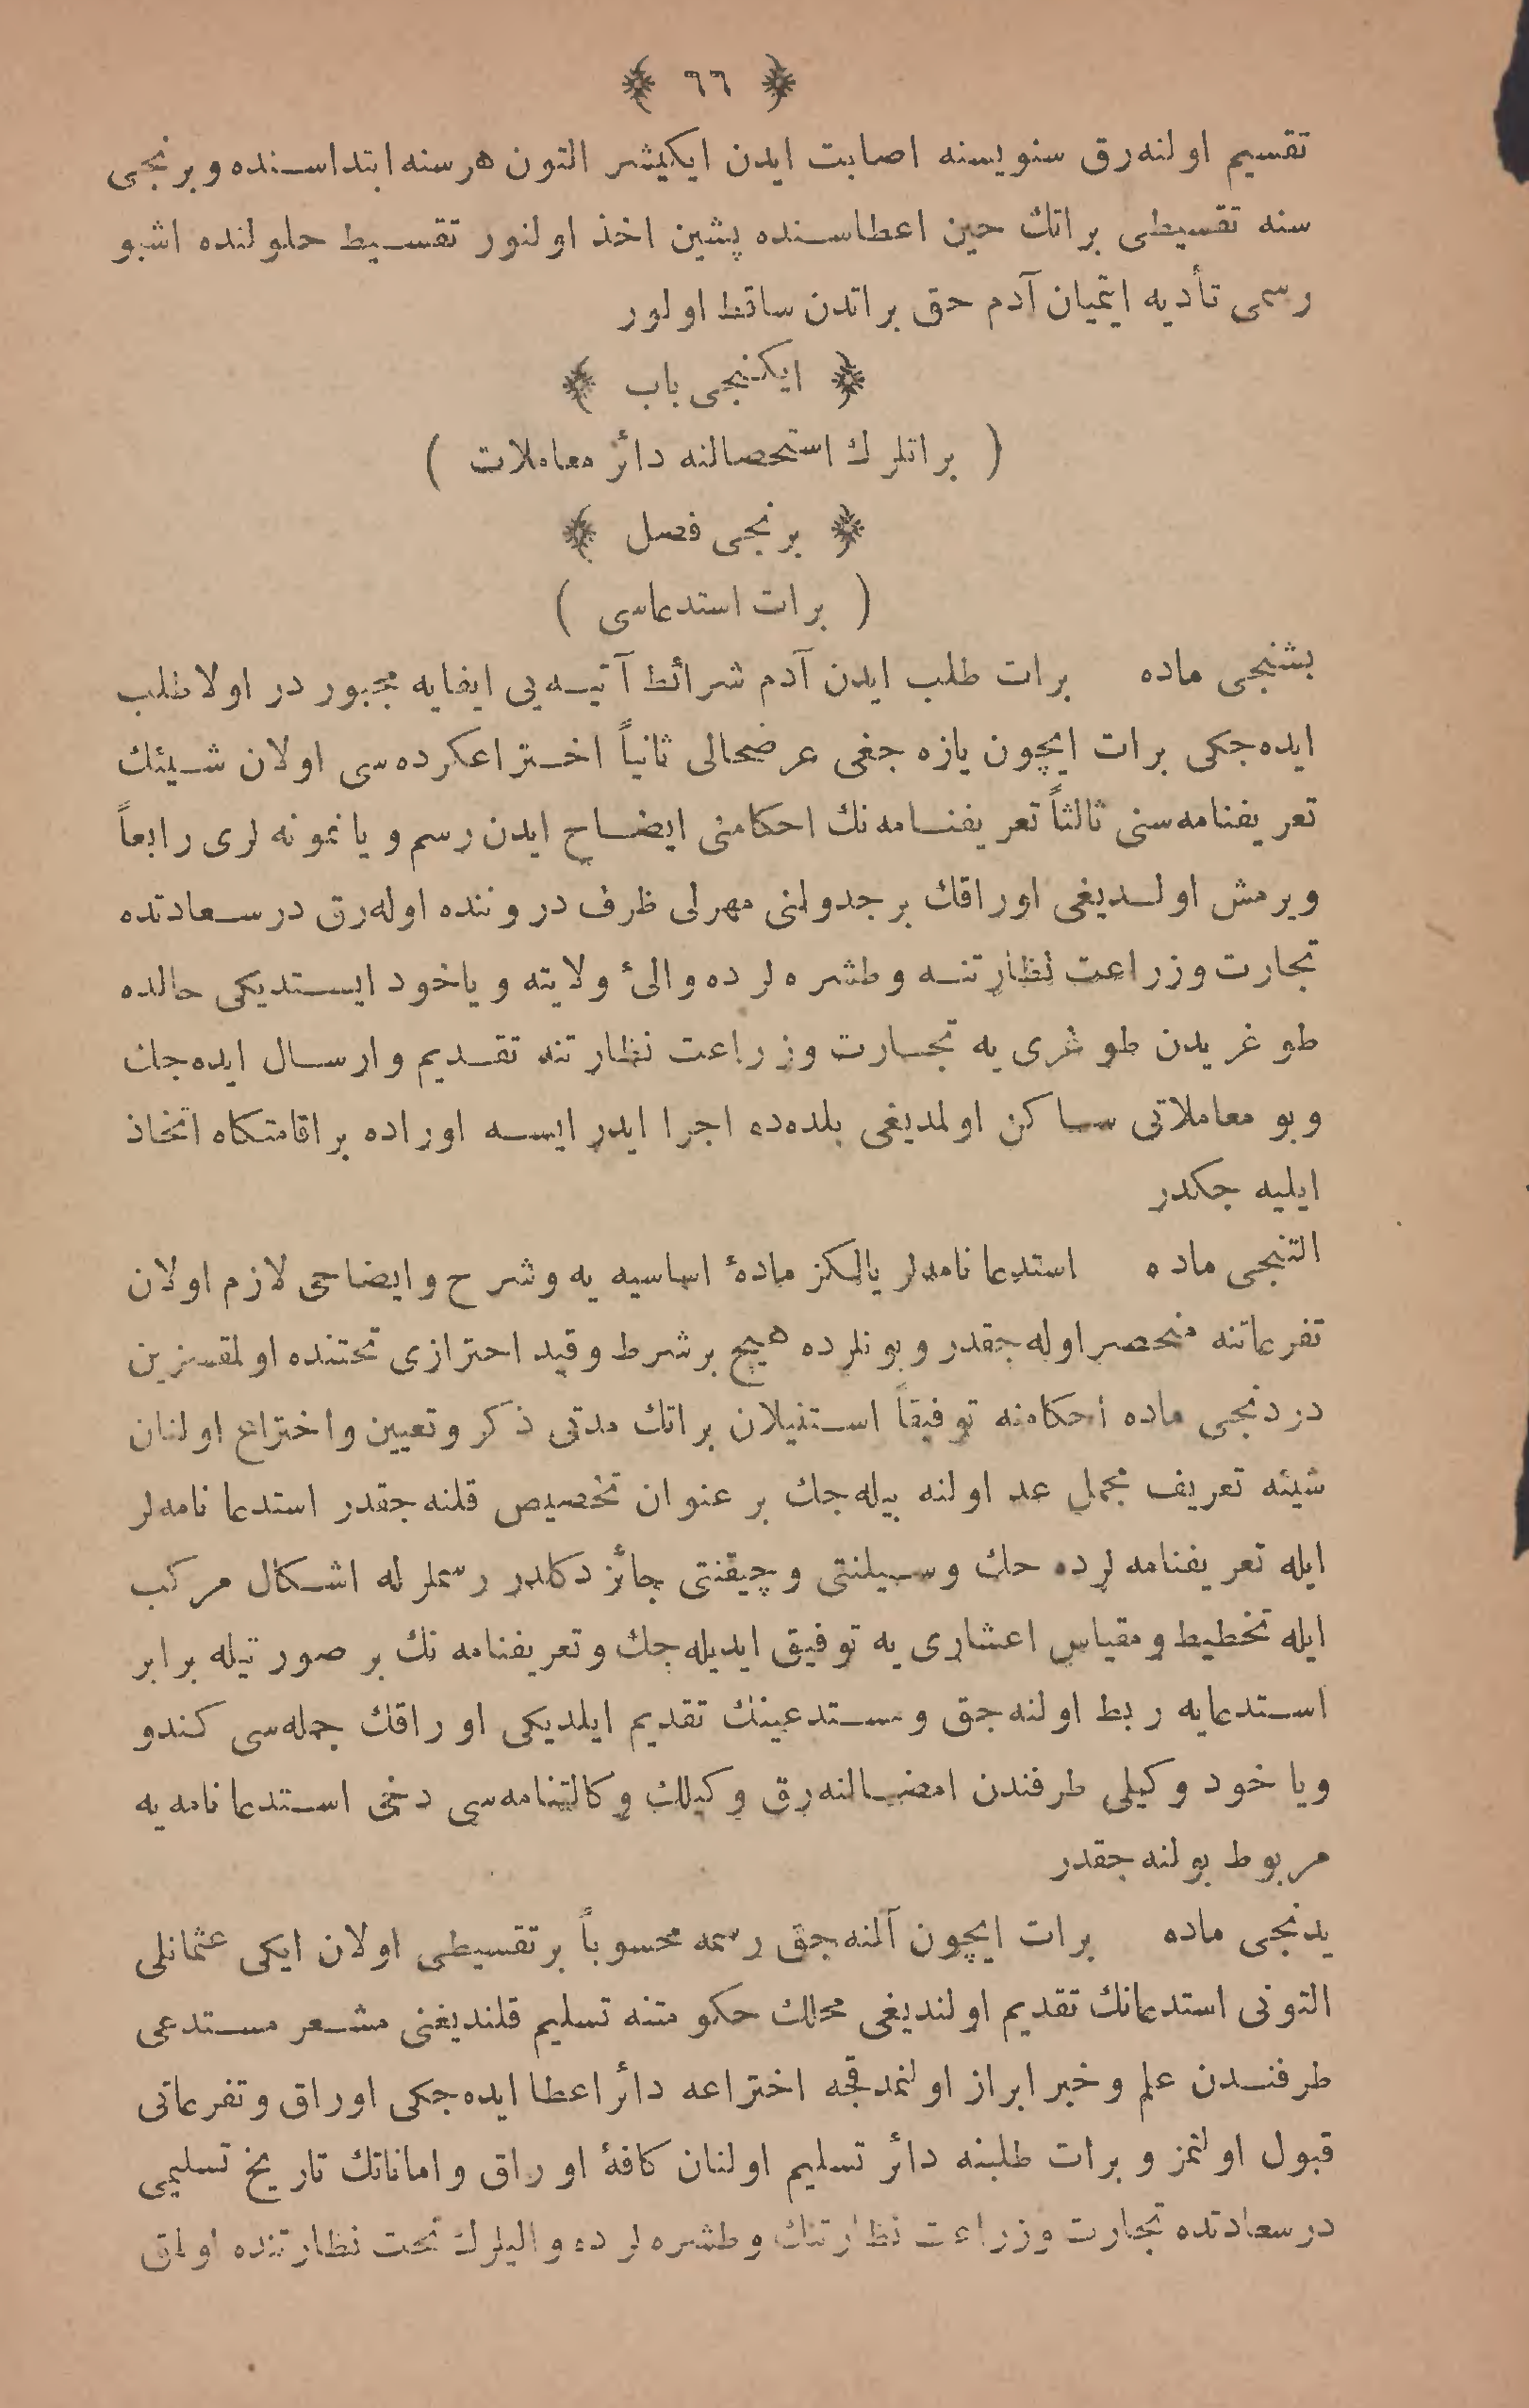 ﴿ ٦٦ ﴾
تقسیم اولنه‌رق سنویسنه اصابت ایدن ایکیشر التون هر سنه ابتداسنده و برنجی
سنه تقسیطی براتك حین اعطاسنده پشین اخذ اولنور تقسیط حلولنده اشبو
رسمی تأدیه ایتمیان آدم حق براتدن ساقط اولور
﴿ ایکنجی باب ﴾
( براتلرك استحصالنه دائر معاملات )
﴿ برنجی فصل ﴾
( برات استدعاسی )
بشنجی ماده برات طلب ایدن آدم شرائط آتیه‌یی ایفایه مجبور در اولا طلب
ایده‌جکی برات ایچون یازه جغی عرضحالی ثانیاً اختراعکرده‌سی اولان شیئك
تعریفنامه‌سنی ثالثاً تعریفنامه‌نك احکامنی ایضاح ایدن رسم و یا نمونه لری رابعاً
ویرمش اولدیغی اوراقك بر جدولنی مهرلی ظرف دروننده اوله‌رق درسعادتده
تجارت وزراعت نظارتنه وطشره لرده والیٔ ولایته و یاخود ایستدیکی حالده
طوغریدن طوغری یه تجارت وزراعت نظارتنه تقدیم وارسال ایده‌جك
وبو معاملاتی ساکن اولمدیغی بلده‌ده اجرا ایدر ایسه اوراده بر اقامتکاه اتخاذ
ایلیه جکدر
التنجی ماده استدعا نامه‌لر یالکز مادهٔ اساسیه یه وشرح وایضاحی لازم اولان
تفرعاتنه منحصر اوله‌جقدر وبونلرده هیچ بر شرط وقید احترازی تحتنده اولمقسزین
دردنجی ماده احکامنه توفیقاً استنیلان براتك مدتی ذکر وتعیین واختراع اولنان
شیئه تعریف مجمل عد اولنه بیله‌جك بر عنوان تخصیص قلنه جقدر استدعا نامه‌لر
ایله تعریفنامه لرده حك وسیلنتی وچیقنتی جائز دکلدر رسملر له اشکال مرکب
ایله تخطیط ومقیاس اعشاری یه توفیق ایدیله‌جك وتعریفنامه نك بر صورتیله برابر
استدعایه ربط اولنه‌جق ومستدعینك تقدیم ایلدیکی اوراقك جمله‌سی کندو
ویا خود وکیلی طرفندن امضالنه‌رق وکیلك وکالتنامه‌سی دخی استدعا نامه یه
مربوط بولنه جقدر
یدنجی ماده برات ایچون آلنه‌جق رسمه محسوباً بر تقسیطی اولان ایکی عثمانلی
التونی استدعانك تقدیم اولندیغی محلك حکومتنه تسلیم قلندیغنی مشعر مستدعی
طرفندن علم وخبر ابراز اولنمدقجه اختراعه دائر اعطا ایده‌جکی اوراق وتفرعاتی
قبول اولنمز و برات طلبنه دائر تسلیم اولنان کافهٔ اوراق واماناتك تاریخ تسلیمی
درسعادتده تجارت وزراعت نظارتنك وطشره لرده والیلرك تحت نظارتنده اولمق